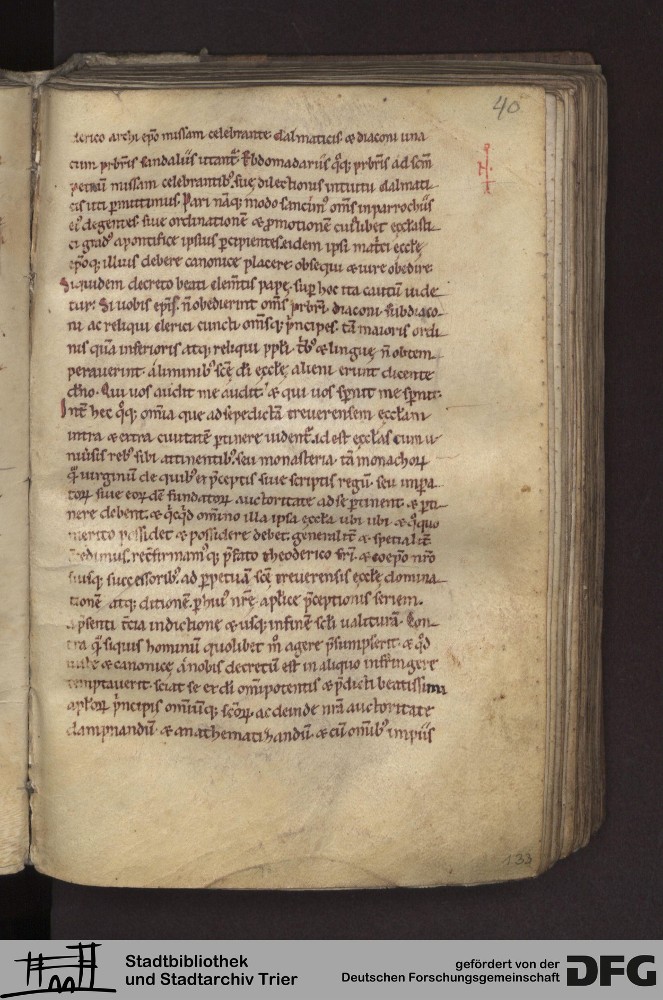 40
derico archi epo missam celebrante. dalmaticis & diaconi una
cum prbris sandaliis utant. Ebdomadarius q̨q; prbris ad scm
petrum missam celebrantib; suę dilectionis intuitu dalmati
cis uti pmittimus. Pari naq; modo sancim omis in parrochiis
ei degentes. siue ordinatione & pmotione cuiuslibet ecclasti
ci grad a pontifice ipsius pcipientes. eidem ipsi matci ecclę
epoq; illius debere canonice placere. obsequi & iure obedire.
Siquidem decreto beati elemtis papę. sup hoc ita cautu uide
tur. Si uobis epis. n obedierint oms prbri. diaconi. subdiaco
ni ac reliqui clerici cuncti. omisq; principes. ta maioris ordi
nis qua inferioris atq; reliqui ppli. tb & linguę. n obtem
perauerint. a liminib; scę di ecclę. alieni erunt dicente
dno. Qui uos audit me audit. & qui uos spnit me spnit.
Int hec q̨q; omia que ad sepedicta treuerensem ecclam
intra & extra ciuitate ptinere uident. id est ecclas cum u
niuisis reb; sibi attinentib;. seu monasteria. ta monachor
q uirginu de quib; ex pceptis siue scriptis regu. seu impa
tor siue eorde fundator auctoritate ad se ptinent. & pti
nere debent. & qcqd omino illa ipsa eccla ubi ubi & q̨quo
merito possidet & possidere debet. generalit & spetialit
credimus. reefirmam q; pfato theoderico fri. & coepo nro
suisq; successorib;. ad ppetua scę treuerensis ecclę domina
tione atq; ditione. p hui nrę aplice pceptionis seriem.
a psenti tcia indictione & usq; in fine scli ualitura. Con
tra q siquis hominum quolibet m agere psumpserit. & qd
iuste & canonice a nobis decretu est in aliquo infringere
temptauerit. sciat se ex di omipotentis & pdicti beatissimi
aplor principis omiuq; scor. ac deinde nra auctoritate
dampnandu. & anathematizandu. & cu omib; impiis
133
Stadtbibliothek
und Stadtarchiv Trier
gefördert von der
Deutschen Forschungsgemeinschaft
DFG